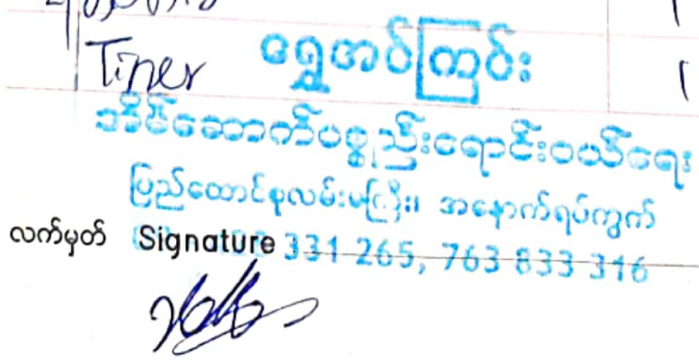 Tiner
ရွှေအပ်ကြင်း
အိမ်ဆောက်ပစ္စည်းရောင်းဝယ်ရေး
ပြည်ထောင်စုလမ်းမကြီး၊ အနောက်ရပ်ကွက်
လက်မှတ် Signature 331 265, 763 833 316